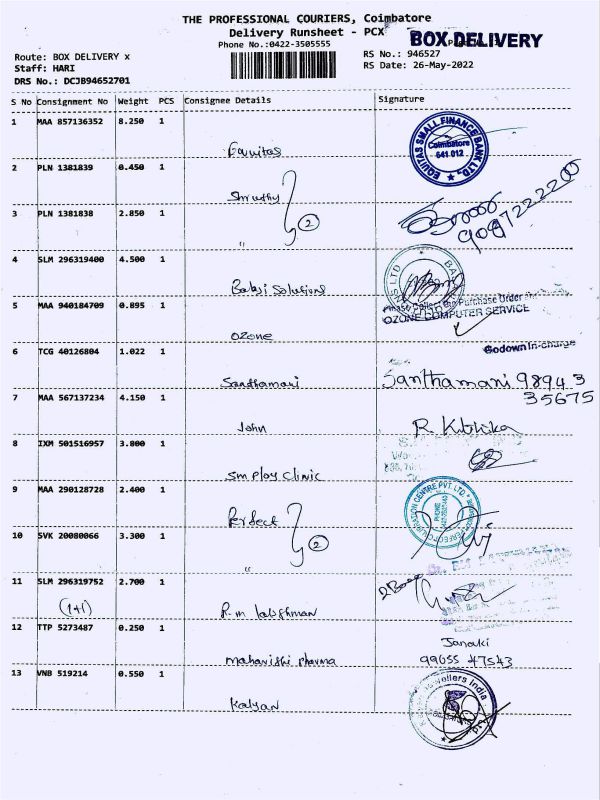 THE PROFESSIONAL COURIERS, Coimbatore
Delivery Runsheet - PCX
BOX DELIVERY
Phone No.:0422-3505555
Route: BOX DELIVERY x
RS No.: 946527
Staff: HARI
RS Date: 26-May-2022
DRS No.: DCJB94652701
S No Consignment No Weight PCS Consignee Details Signature
1 MAA 857136352 8.250 1
Equitas
EQUITAS SMALL FINANCE BANK LTD.
Coimbatore
641 012
2 PLN 1381839 0.450 1
Shruthy
2
3 PLN 1381838 2.850 1
"
4 SLM 296319400 4.500 1
Balaji Solutions
5 MAA 940184709 0.895 1
Purchase Order
OZONE COMPUTER SERVICE
Ozone
Godown In-charge
6 TCG 40126804 1.022 1
Santhamani
Santhamani 98943
35675
7 MAA 567137234 4.150 1
John
8 IXM 501516957 3.800 1
Sm Ploy Clinic
9 MAA 290128728 2.400 1
Perfect
2
10 SVK 20080066 3.300 1
"
11 SLM 296319752 2.700 1
(1+1)
R.m lakshman
12 TTP 5273487 0.250 1
Janaki
maharishi pharma
99655 47543
13 VNB 519214 0.550 1
Kalyan